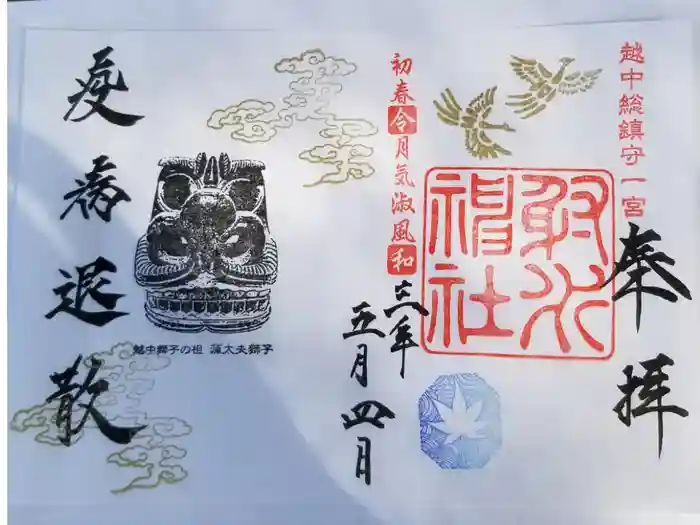 越中総鎮守一宮
奉拝
射水
神社
初春令月気淑風和
三年
五月四日
越中獅子の祖 源太夫獅子
疫病退散